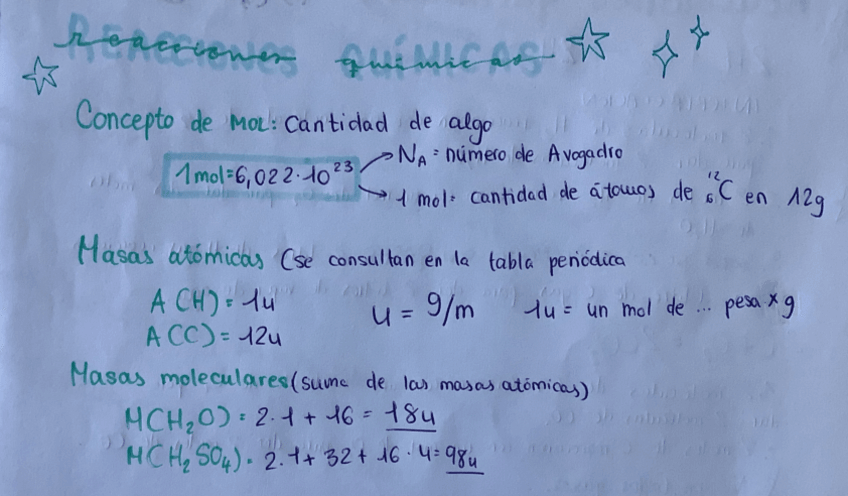 REACCIONES QUÍMICAS
Concepto de mol: Cantidad de algo
1mol=6,022·10²³
N_A = número de Avogadro
1 mol = cantidad de átomos de ¹²₆C en 12g
Masas atómicas (se consultan en la tabla periódica
A(H) = 1u
A(C) = 12u
u = g/m
1u = un mol de ... pesa x g
Masas moleculares (suma de las masas atómicas)
M(H₂O) = 2·1 + 16 = 18u
M(H₂SO₄) = 2·1 + 32 + 16·4 = 98u